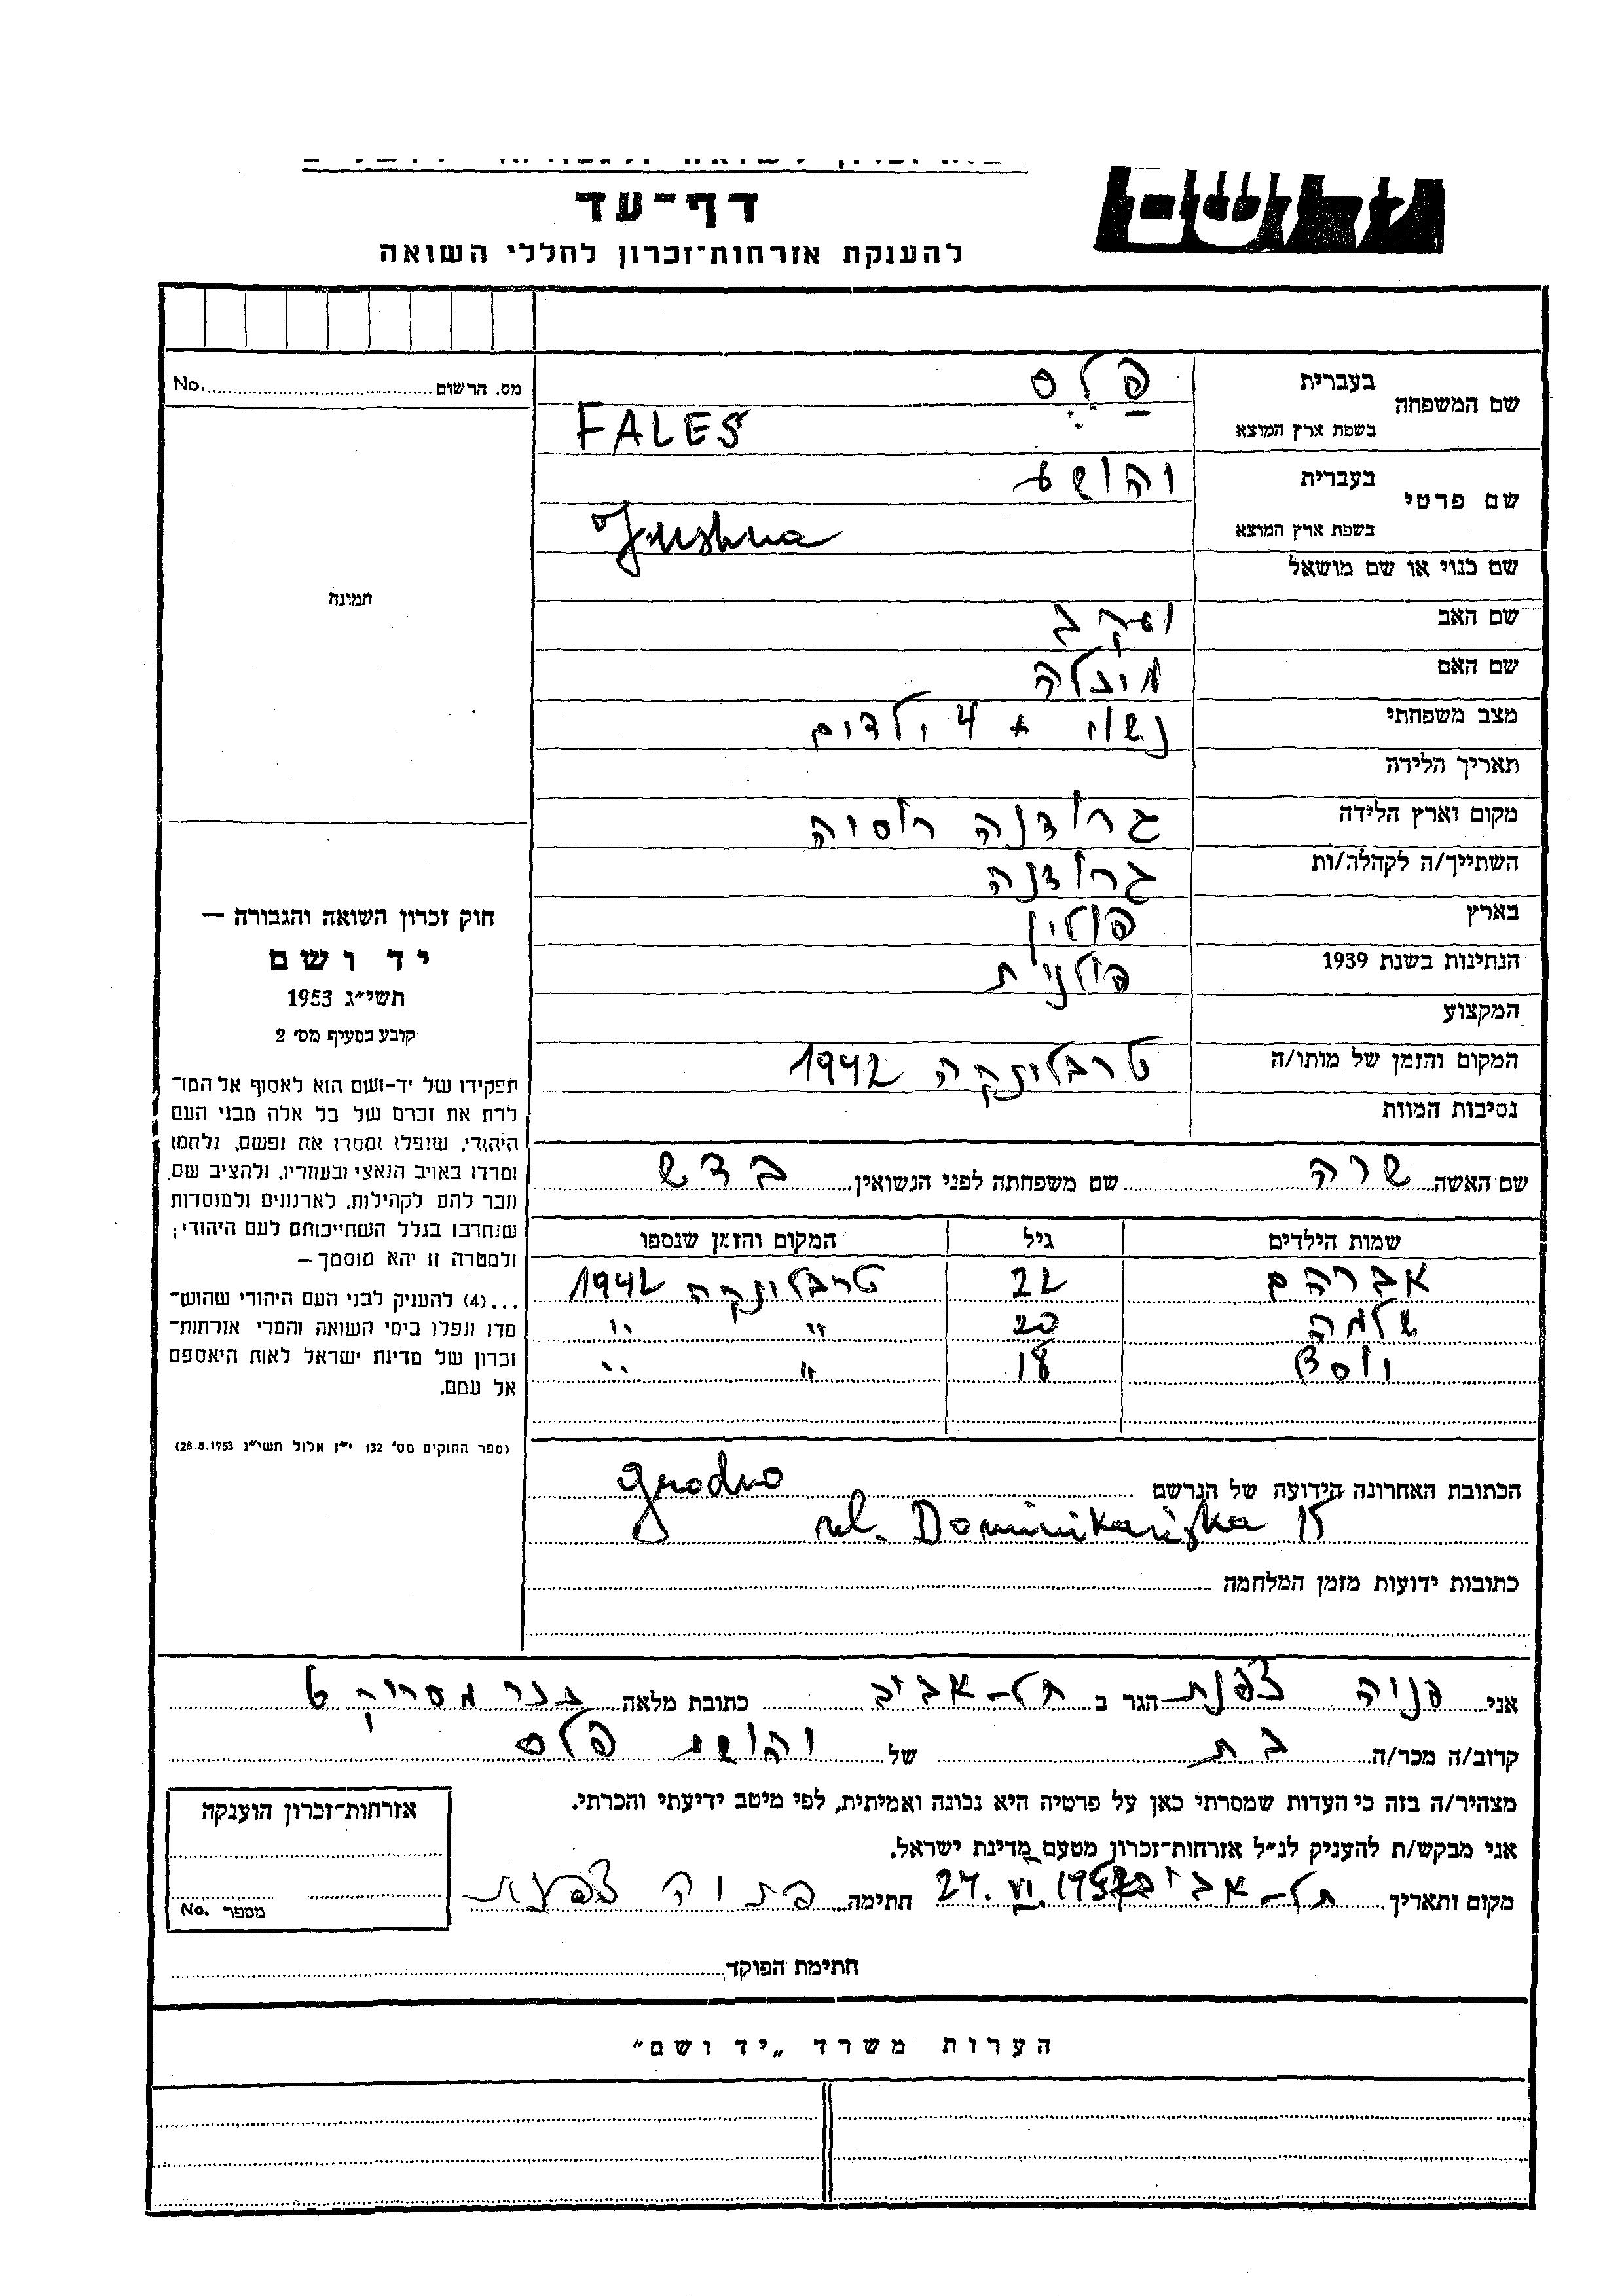 דף-עד
להענקת אזרחות-זכרון לחללי השואה
מס. הרשום No.
שם המשפחה
בעברית פלס
בשפת ארץ המוצא FALES
שם פרטי
בעברית יהושע
בשפת ארץ המוצא Jeshua
שם כנוי או שם מושאל
שם האב יעקב
שם האם
מצב משפחתי נשוי + 4 ילדים
תאריך הלידה
מקום וארץ הלידה גרודנה רוסיה
השתייך/ה לקהלה/ות גרודנה
בארץ פולין
הנתינות בשנת 1939 פולנית
המקצוע
המקום והזמן של מותו/ה טרבלינקה 1942
נסיבות המוות
שם האשה שרה שם משפחתה לפני הנשואין בדש
שמות הילדים גיל המקום והזמן שנספו
אברהם 22 טרבלינקה 1942
שלמה 20 " "
יוסף 18 " "
הכתובת האחרונה הידועה של הנרשם Grodno
ul. Dominikańska 15
כתובות ידועות מזמן המלחמה
תמונה
חוק זכרון השואה והגבורה —
יד ושם
תשי"ג 1953
קובע בסעיף מס' 2
תפקידו של יד-ושם הוא לאסוף אל המו-
לדת את זכרם של כל אלה מבני העם
היהודי, שנפלו ומסרו את נפשם, נלחמו
ומרדו באויב הנאצי ובעוזריו, ולהציב שם
וזכר להם לקהילות, לארגונים ולמוסדות
שנחרבו בגלל השתייכותם לעם היהודי;
ולמטרה זו יהא מוסמך —
...(4) להעניק לבני העם היהודי שהוש-
מדו ונפלו בימי השואה והמרי אזרחות-
זכרון של מדינת ישראל לאות היאספם
אל עמם.
(ספר החוקים מס' 132 י"ז אלול תשי"ג 28.8.1953)
אני פניה צפנת הגר ב תל-אביב כתובת מלאה 6
קרוב/ה מכר/ה בת של יהושע פלס
מצהיר/ה בזה כי העדות שמסרתי כאן על פרטיה היא נכונה ואמיתית, לפי מיטב ידיעתי והכרתי.
אני מבקש/ת להעניק לנ"ל אזרחות-זכרון מטעם מדינת ישראל.
מקום ותאריך תל-אביב חתימה
אזרחות-זכרון הוענקה
מספר No.
חתימת הפוקד
הערות משרד „יד ושם"